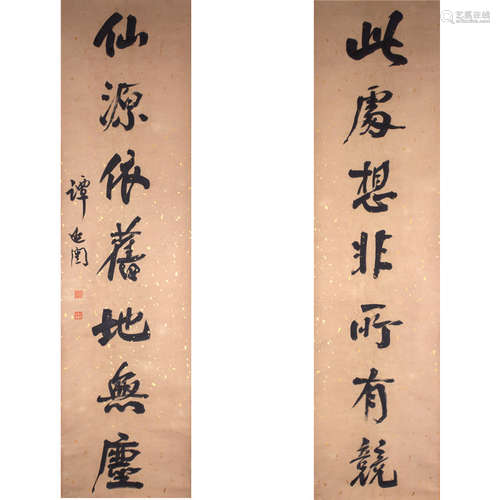 此處想非所有競
仙源依舊地無塵
譚延闓